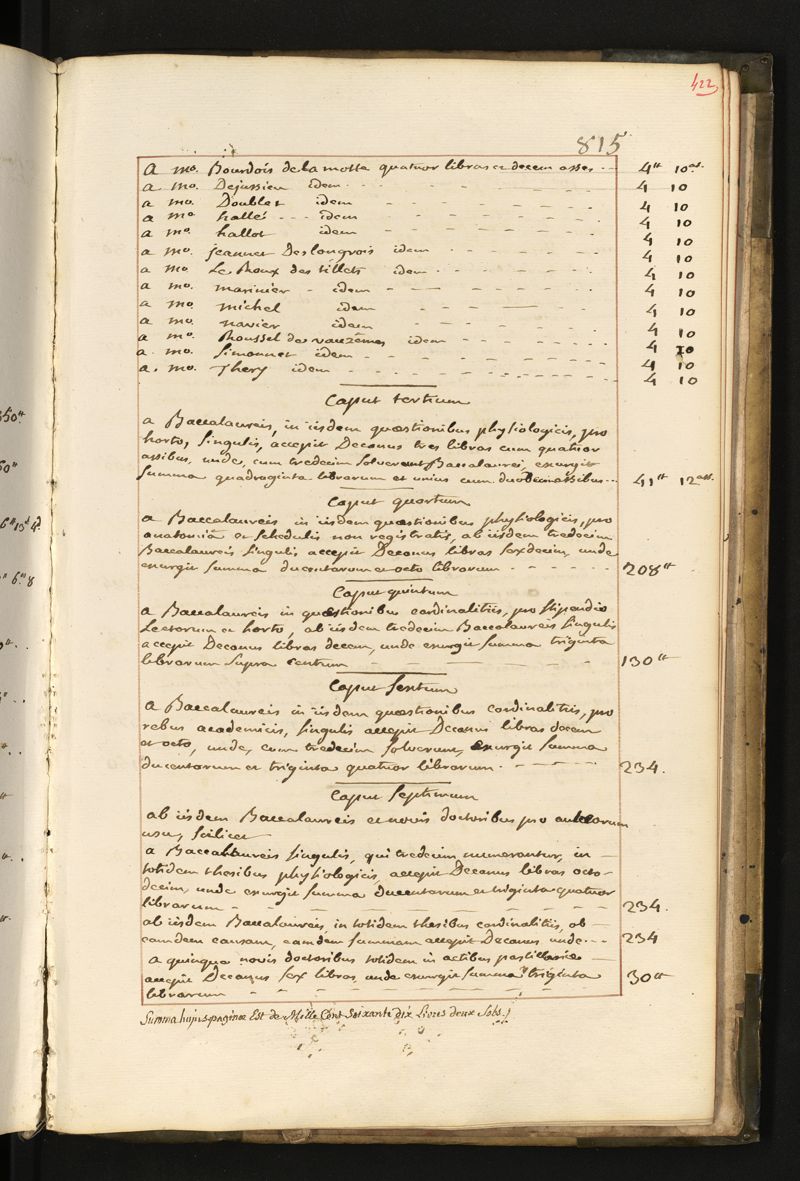 422
815
a mo. Bourdois de la motte quatuor libras et decem asses -- 4tt 10as.
a mo. Dejussieu idem 4 10
a mo. Doublet idem 4 10
a mo hallé idem 4 10
a mo. hallot idem 4 10
a mo. jeannet Deslongrois idem 4 10
a mo. Le Roux des tillets idem 4 10
a mo. marinier idem 4 10
a mo. michel idem 4 10
a mo. navier idem 4 10
a mo. Roussel de vauzèmes idem 4 10
a. mo. Simonnet idem 4 10
a. mo. Thery idem 4 10
Caput tertium
a Baccalaureis, in iisdem quæstionibus physiologicis, pro
horto, singulis, accepit Decanus tres libras cum quatuor
assibus, unde, cum tredecim solverent Baccalaurei, exurgit
summa quadraginta librarum et unius cum duodecim assibus -- 41tt 12ass.
Caput quartum
a Baccalaureis in iisdem quæstionibus physiologicis, pro
anatomiâ et schedulis non registratis, ab iisdem tredecim
Baccalaureis singulis accepit Decanus libras sexdecim, unde
exurgit summa ducentarum et octo librarum 208tt
Caput quintum
a Baccalaureis in quæstionibus cardinalitiis, pro stipendio
Lectorum et horto, ab iisdem tredecim Baccalaureis singulis
accepit Decanus libras decem, unde exurgit summa triginta
librarum supra centum 130tt
Caput Sextum
a Baccalaureis in iisdem quæstionibus cardinalitiis, pro
rebus academicis, singulis accepit Decanus libras decem
et octo, unde, cum tredecim solverunt, exurgit summa
ducentarum et triginta quatuor librarum 234.
Caput Septimum
ab iisdem Baccalaureis et novis doctoribus pro aulæorum
usu, scilicet
a Baccalaureis singulis, qui tredecim numerantur, in
totidem thesibus physiologicis, accepit Decanus libras octo-
decim, unde exurgit summa ducentarum et triginta quatuor
librarum 234.
ab iisdem Baccalaureis, in totidem thesibus cardinalitiis, ob
eamdem causam, eamdem summam accepit Decanus unde -- 234
a quinque novis doctoribus totidem in actibus pastillariis
accepit Decanus sex libras, unde exurgit summa triginta
librarum 30tt
Summa hujus paginæ Est de Mille Cent Soixante dix Livres deux Sols.